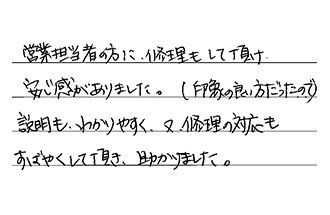 営業担当者の方に、修理もして頂け
安心感がありました。(印象の良い方だったので)
説明も、わかりやすく、又、修理の対応も
すばやくして頂き、助かりました。